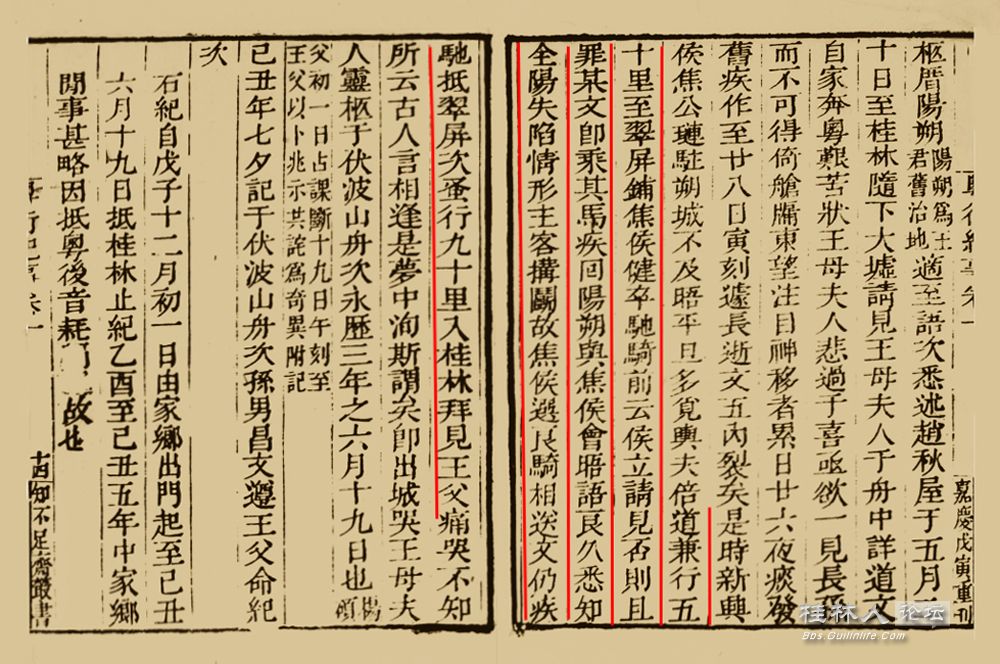 嘉慶戊寅重刊
柩厝陽朔陽朔爲王君舊治地適至語次悉述趙秋屋于五月二
十日至桂林隨下大墟請見王母夫人于舟中詳道文
自家奔粵艱苦狀王母夫人悲過于喜亟欲一見長孫
而不可得倚艙牖東望注目神移者累日廿六夜痰發
舊疾作至廿八日寅刻遽長逝文五內裂矣是時新興
侯焦公璉駐朔城不及晤平旦多覓輿夫倍道兼行五
十里至翠屏鋪焦侯健卒馳騎前云侯立請見否則且
罪某文卽乘其馬疾回陽朔與焦侯會晤語良久悉知
全陽失陷情形主客搆鬭故焦侯選良騎相送文仍疾
馳抵翠屏次蚤行九十里入桂林拜見王父痛哭不知
所云古人言相逢是夢中洵斯謂矣卽出城哭王母夫
人靈柩于伏波山舟次永歷三年之六月十九日也楊碩
父初一日占課斷十九日午刻至
王父以卜兆示共詫爲奇異附記
己丑年七夕記于伏波山舟次孫男昌文遵王父命紀
次
石紀自戊子十二月初一日由家鄉出門起至己丑
六月十九日抵桂林止紀乙酉至己丑五年中家鄉
聞事甚略因抵粵後音耗故也
十四知不足齋叢書
桂林人论坛
Bbs.Guilinlife.Com